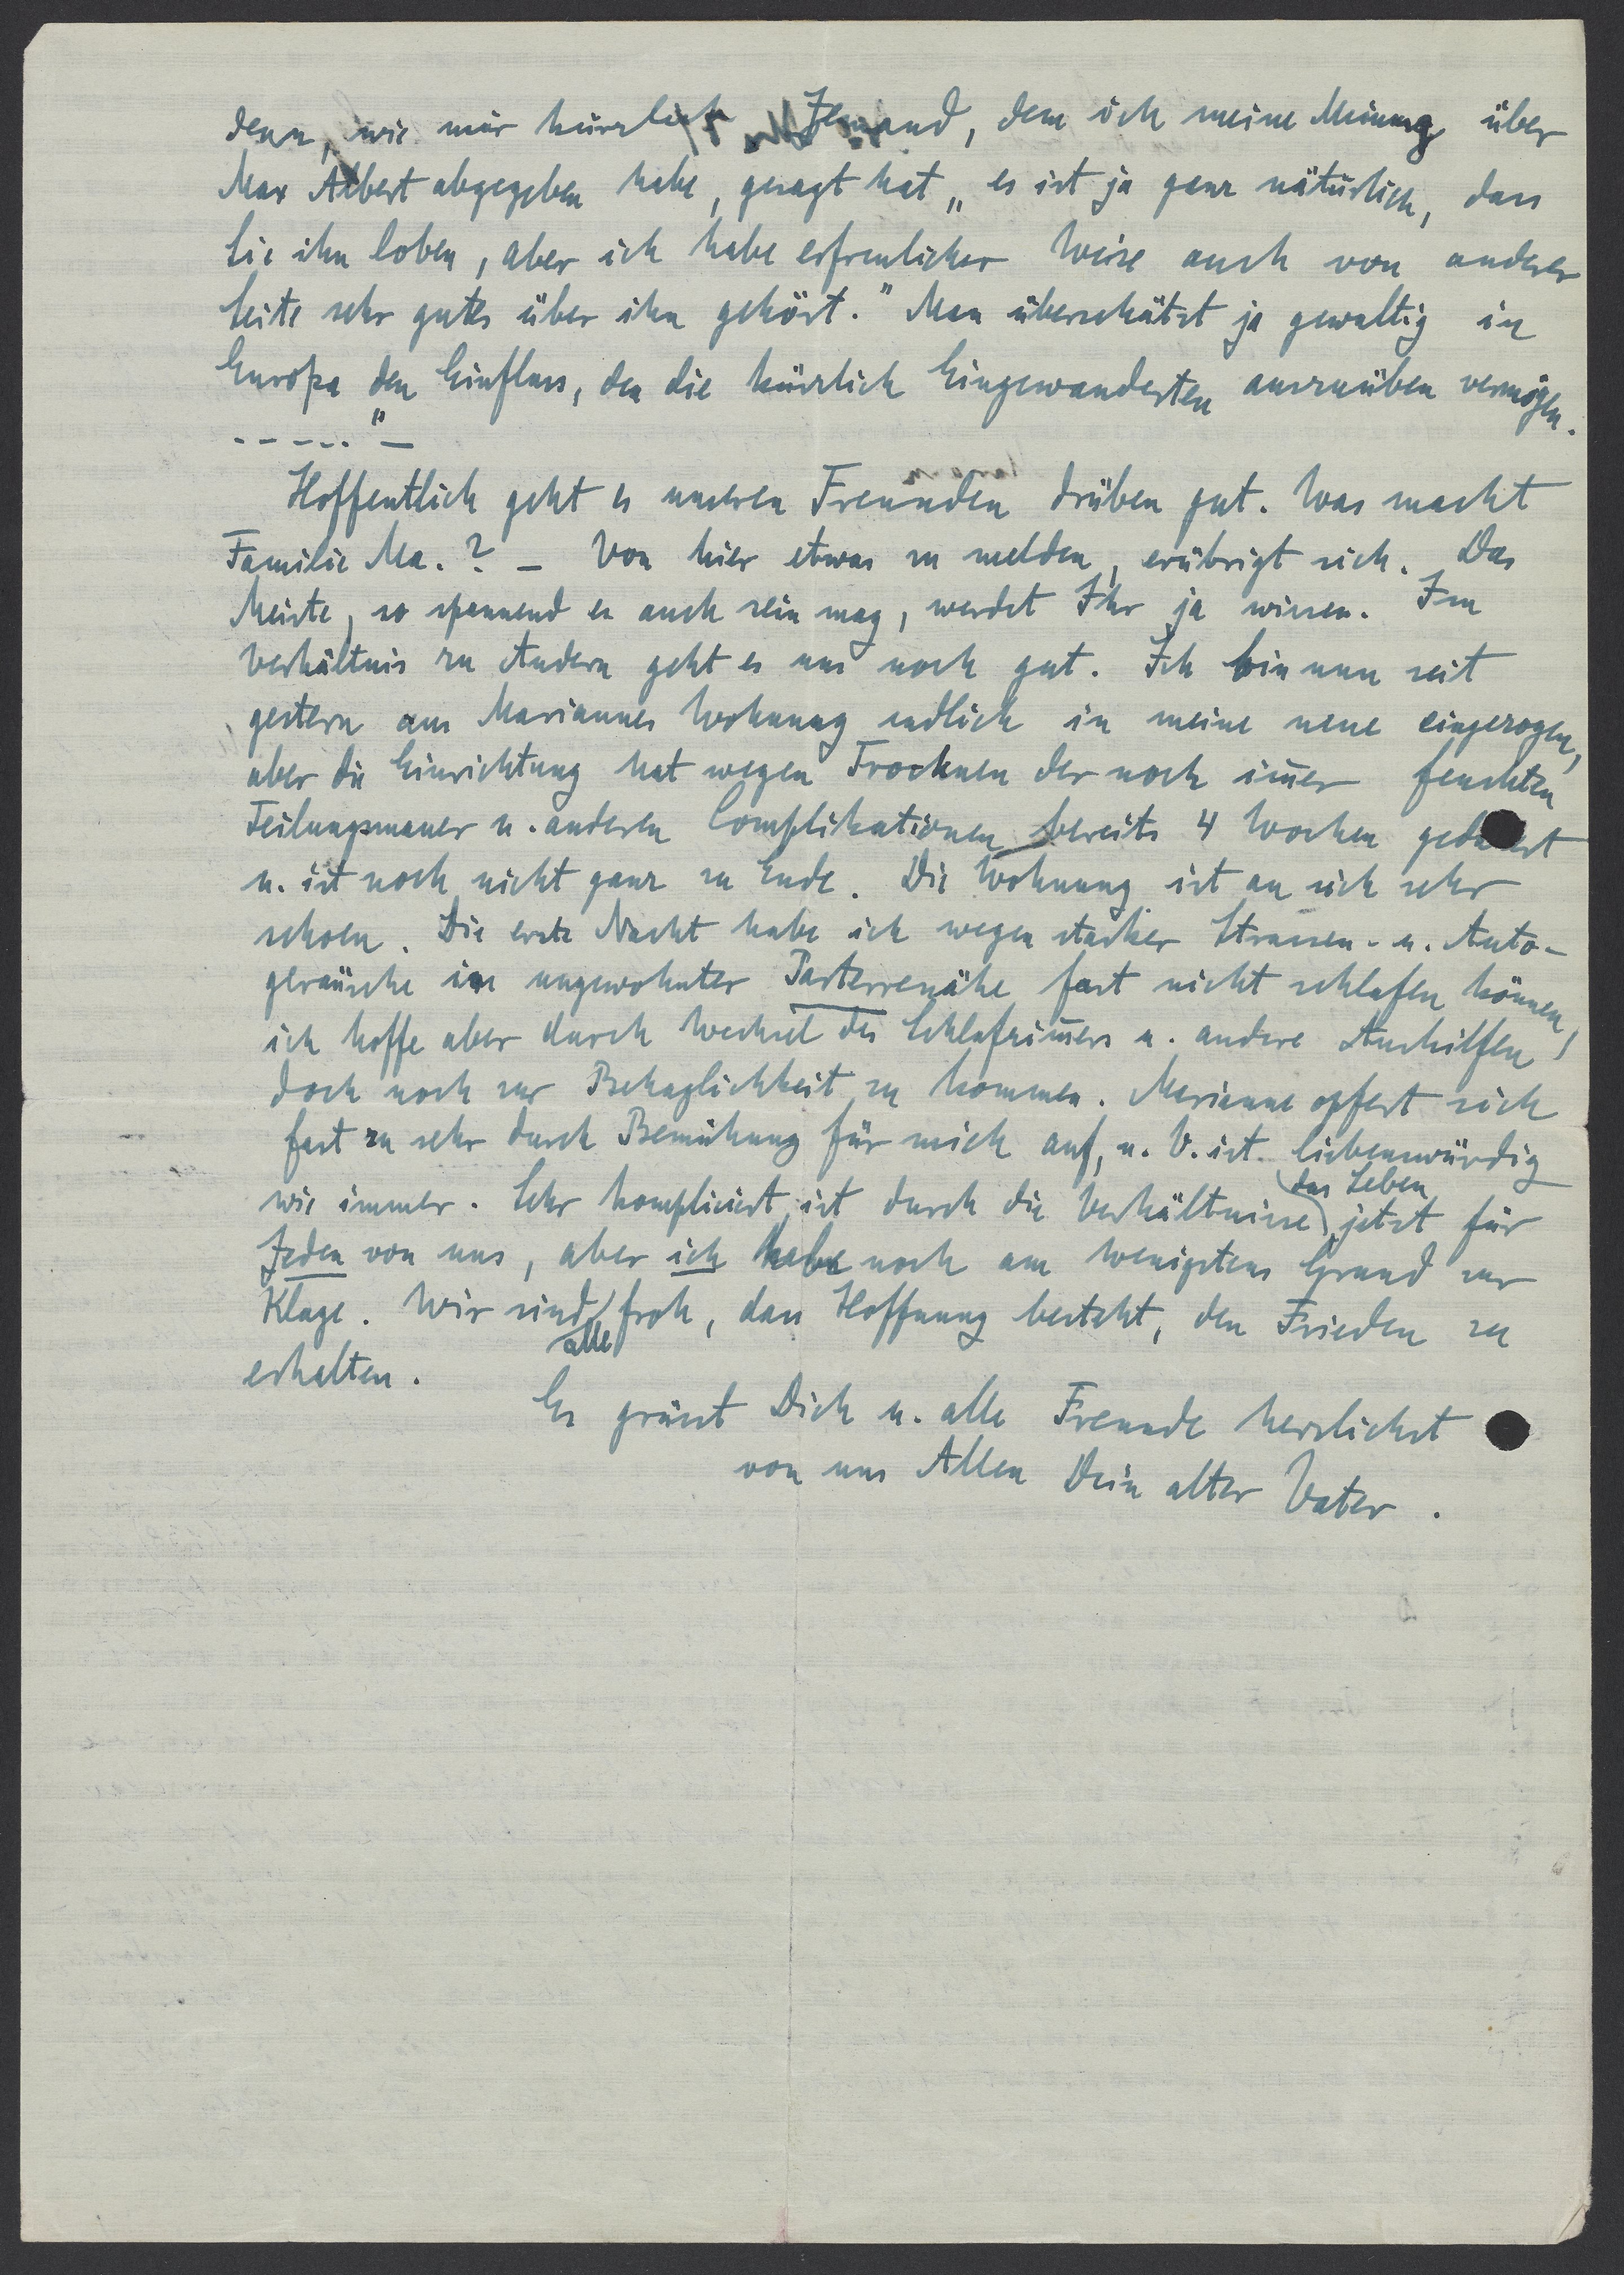 denn, wie mir kürzlich Jemand, dem ich meine Meinung über
Max Albert abgegeben habe, gesagt hat „es ist ja ganz natürlich, dass
Sie ihn loben, aber ich habe erfreulicher Weise auch von anderer
Seite sehr gutes über ihn gehört." Man überschätzt ja gewaltig in
Europa den Einfluss, den die kürzlich Eingewanderten auszuüben vermögen.
-----." –
Hoffentlich geht es unseren Freunden drüben gut. Was macht
Familie Ma.? – Von hier etwas zu melden, erübrigt sich. Das
Meiste, so spannend es auch sein mag, werdet Ihr ja wissen. Im
Verhältnis zu Andern geht es uns noch gut. Ich bin nun seit
gestern aus Mariannes Wohnung endlich in meine neue eingezogen,
aber die Einrichtung hat wegen Trocknen der noch im̄er feuchten
Teilungsmauer u. anderen Complikationen bereits 4 Wochen gedauert
u. ist noch nicht ganz zu Ende. Die Wohnung ist an sich sehr
schoen. Die erste Nacht habe ich wegen starker Strassen- u. Auto-
geräusche in ungewohnter Parterrenähe fast nicht schlafen können,
ich hoffe aber durch Wechsel des Schlafzim̄ers u. andere Aushilfen
doch noch zur Behaglichkeit zu kommen. Marianne opfert sich
fast zu sehr durch Bemühung für mich auf, u. V. ist liebenswürdig
wie immer. Sehr kompliciert ist durch die Verhältnisse das Leben jetzt für
Jeden von uns, aber ich habe noch am wenigstens Grund zur
Klage. Wir sind alle froh, dass Hoffnung besteht, den Frieden zu
erhalten.
Es grüsst Dich u. alle Freunde herzlichst
von uns Allen Dein alter Vater.